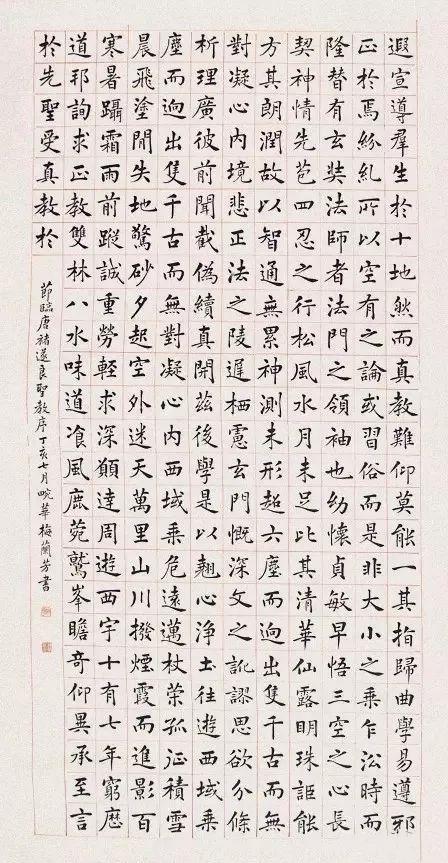 遐宣導羣生於十地然而真教難仰莫能一其指歸曲學易遵邪
正於焉紛糺所以空有之論或習俗而是非大小之乘乍沿時而
隆替有玄奘法師者法門之領袖也幼懷貞敏早悟三空之心長
契神情先苞四忍之行松風水月未足比其清華仙露明珠詎能
方其朗潤故以智通無累神測未形超六塵而迥出隻千古而無
對凝心內境悲正法之陵遲栖慮玄門慨深文之訛謬思欲分條
析理廣彼前聞截偽續真開茲後學是以翹心淨土往遊西域乘
塵而迥出隻千古而無對凝心內西域乘危遠邁杖策孤征積雪
晨飛塗閒失地驚砂夕起空外迷天萬里山川撥煙霞而進影百
寒暑躡霜雨前蹤誠重勞輕求深願達周遊西宇十有七年窮歷
道邦詢求正教雙林八水味道飡風鹿菀鷲峯瞻奇仰異承至言
於先聖受真教於
節臨唐褚遂良聖教序丁亥七月畹華梅蘭芳書